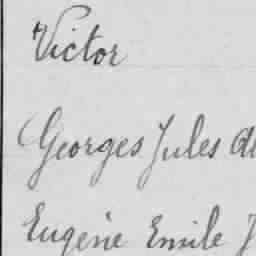 Victor
Georges Jules
Eugène Emile